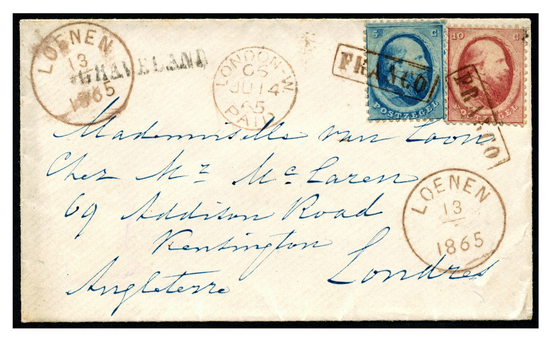 LOENEN
13
1865
'SGRAVELAND
LONDON-W
JU 14
65
PAID
5 C
POSTZEGEL
FRANCO
10 C
POSTZEGEL
FRANCO
Mademoiselle van Loon
Chez Mr McLaren
69 Addison Road
Kensington
Londres
Angleterre
LOENEN
13
1865